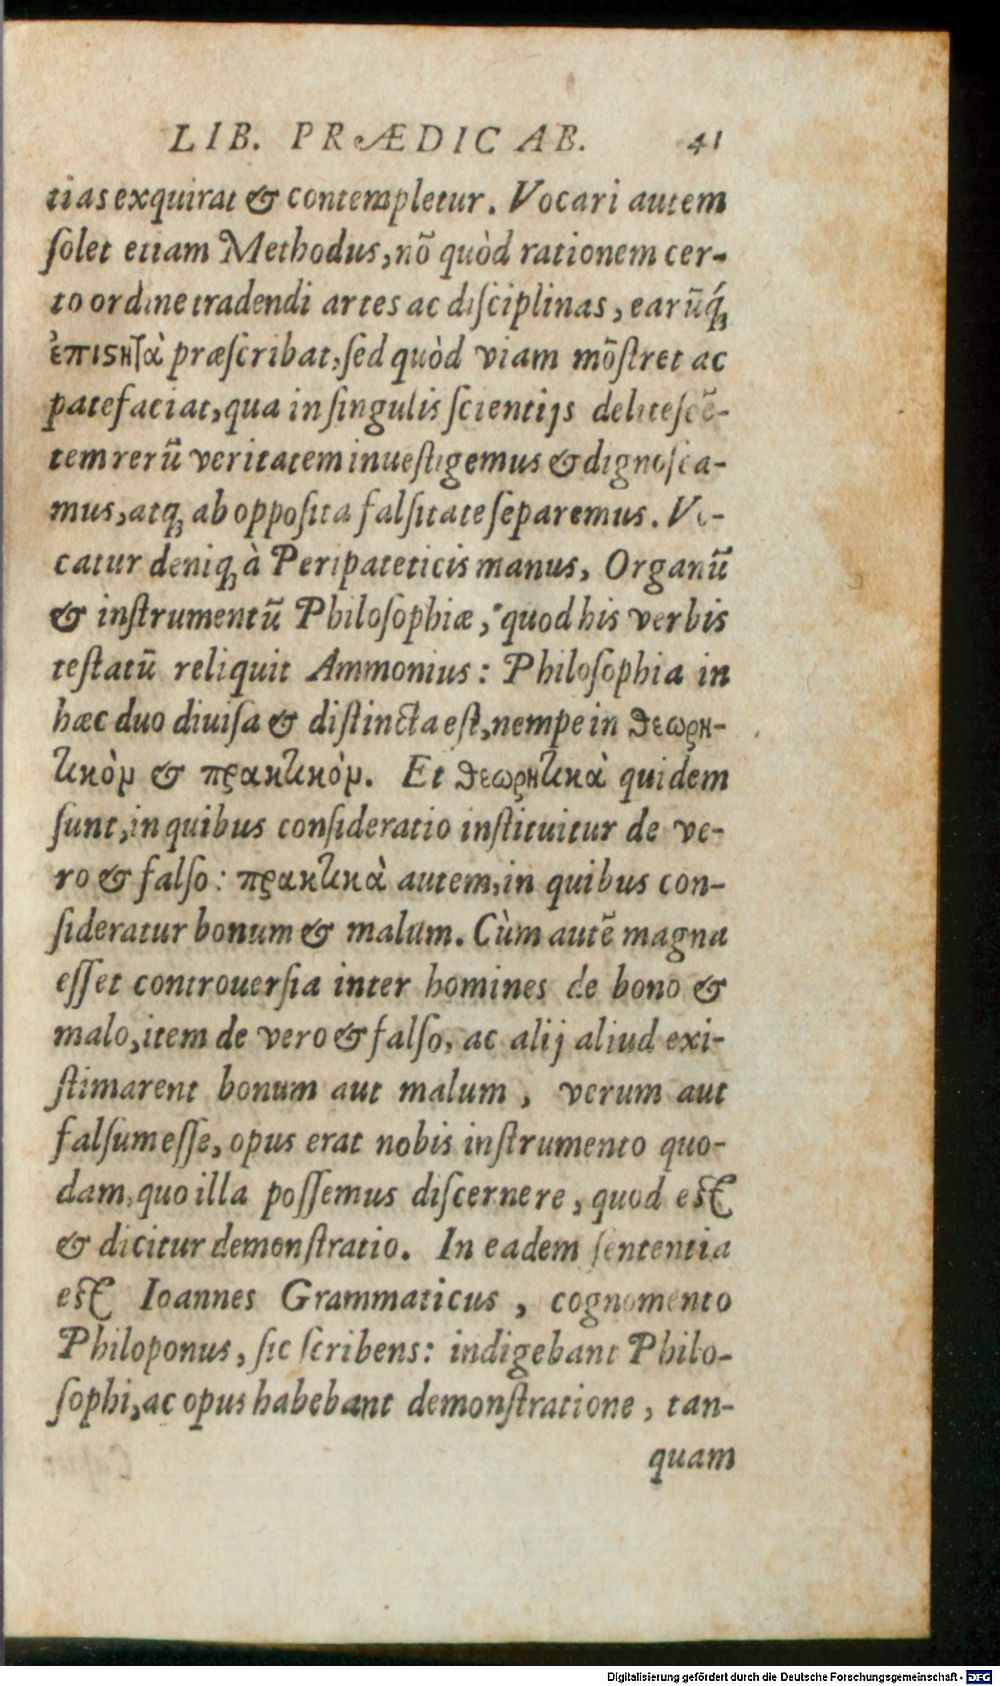 LIB. PRÆDICAB. 41
tias exquirat & contempletur. Vocari autem
ſolet etiam Methodus, nõ quòd rationem cer-
to ordine tradendi artes ac diſciplinas, earũq́;
præſcribat, ſed quòd viam mõſtret ac
patefaciat, qua in ſingulis ſcientijs deliteſcẽ-
tem rerũ veritatem inueſtigemus & dignoſca-
mus, atq; ab oppoſita falſitate ſeparemus. Vo-
catur deniq; à Peripateticis manus, Organũ
& inſtrumentũ Philoſophiæ, quod his verbis
teſtatũ reliquit Ammonius: Philoſophia in
hæc duo diuiſa & diſtincta eſt, nempe in θεωρη-
τικὸμ & πρακτικὸμ. Et θεωρητικὰ quidem
ſunt, in quibus conſideratio inſtituitur de ve-
ro & falſo: πρακτικὰ autem, in quibus con-
ſideratur bonum & malum. Cùm autẽ magna
eſſet controuerſia inter homines de bono &
malo, item de vero & falſo, ac alij aliud exi-
ſtimarent bonum aut malum, verum aut
falſum eſſe, opus erat nobis inſtrumento quo-
dam, quo illa poſſemus diſcernere, quod eſt
& dicitur demonſtratio. In eadem ſententia
eſt Ioannes Grammaticus, cognomento
Philoponus, ſic ſcribens: indigebant Philo-
ſophi, ac opus habebant demonſtratione, tan-
quam
Digitalisierung gefördert durch die Deutsche Forschungsgemeinschaft - DFG